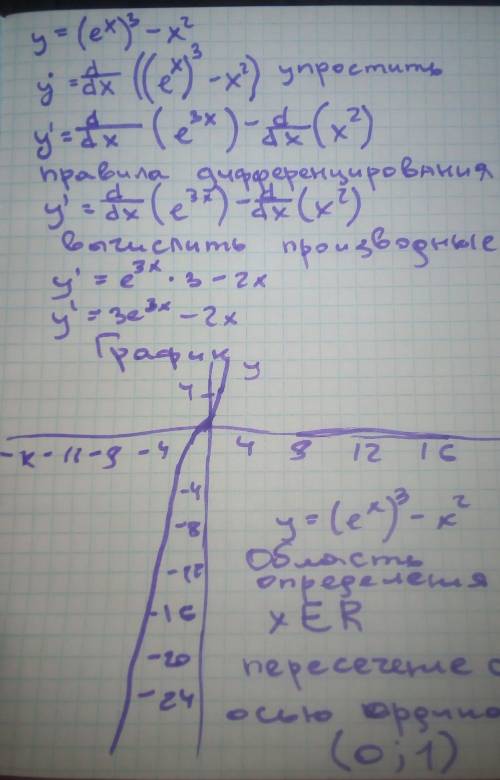 y = (eˣ)³ - x²
y' = d/dx ((eˣ)³ - x²) упростить
y' = d/dx (e³ˣ) - d/dx (x²)
правила дифференцирования
y' = d/dx (e³ˣ) - d/dx (x²)
вычислить производные
y' = e³ˣ · 3 - 2x
y' = 3e³ˣ - 2x
График
y
4
-x -11 -9 -4 4 8 12 16
-4
-8
-12
-16
-20
-24
y = (eˣ)³ - x²
Область
определения
x ∈ R
пересечение с
осью ордина
(0; 1)